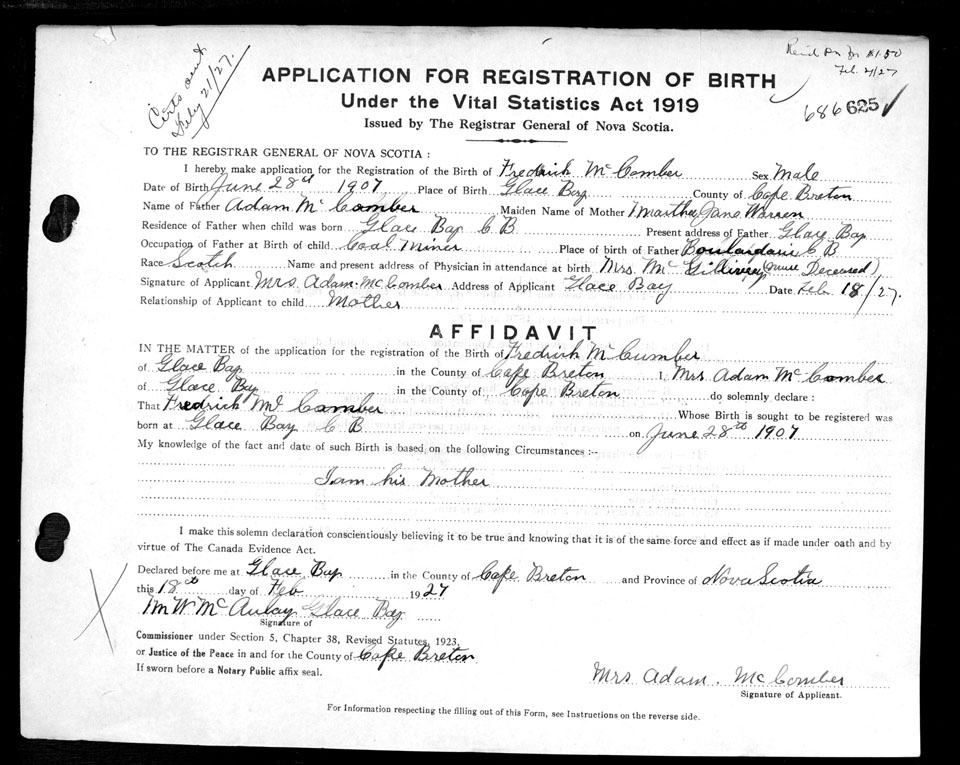 Certs sent
Feby 21/27.
Rec'd for $1.50
Feb. 21/27
686 625
APPLICATION FOR REGISTRATION OF BIRTH
Under the Vital Statistics Act 1919
Issued by The Registrar General of Nova Scotia.
TO THE REGISTRAR GENERAL OF NOVA SCOTIA :
I hereby make application for the Registration of the Birth of Fredrick McComber Sex Male
Date of Birth June 28th 1907 Place of Birth Glace Bay County of Cape Breton
Name of Father Adam McComber Maiden Name of Mother Martha Jane Warren
Residence of Father when child was born Glace Bay C B Present address of Father Glace Bay
Occupation of Father at Birth of child Coal Miner Place of birth of Father Boulardarie C B
Race Scotch Name and present address of Physician in attendance at birth Mrs. McGillivrey (nurse Deceased)
Signature of Applicant Mrs. Adam. McComber Address of Applicant Glace Bay Date Feb 18/27.
Relationship of Applicant to child Mother
AFFIDAVIT
IN THE MATTER of the application for the registration of the Birth of Fredrick McCumber
of Glace Bay in the County of Cape Breton I, Mrs Adam McComber
of Glace Bay in the County of Cape Breton do solemnly declare :
That Fredrick McComber Whose Birth is sought to be registered was
born at Glace Bay C B on June 28th 1907
My knowledge of the fact and date of such Birth is based on the following Circumstances :--
I am his Mother
I make this solemn declaration conscientiously believing it to be true and knowing that it is of the same force and effect as if made under oath and by
virtue of The Canada Evidence Act.
Declared before me at Glace Bay in the County of Cape Breton and Province of Nova Scotia
this 18th day of Feb 1927
M W McAulay Glace Bay
Signature of
Commissioner under Section 5, Chapter 38, Revised Statutes, 1923,
or Justice of the Peace in and for the County of Cape Breton
If sworn before a Notary Public affix seal.
Mrs Adam. McComber
Signature of Applicant.
For Information respecting the filling out of this Form, see Instructions on the reverse side.